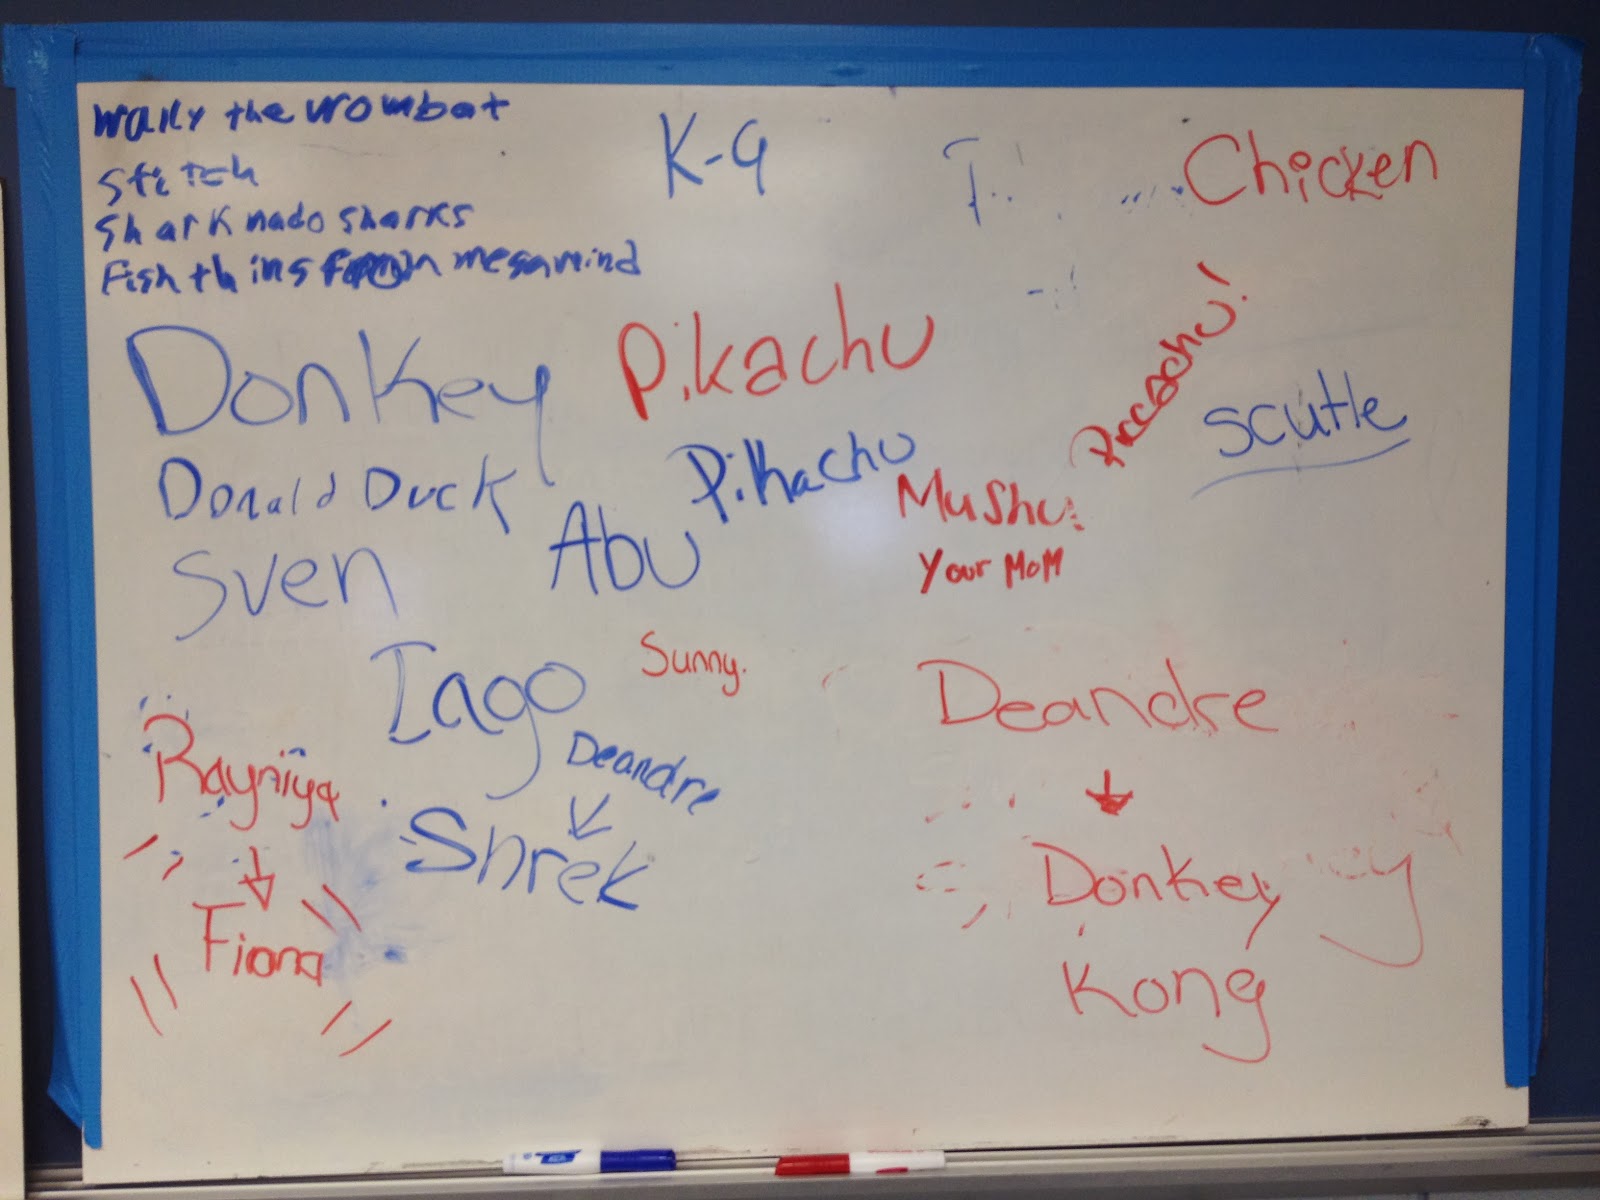 Wally the wombat
Stitch
Shark nado sharks
Fish things from megamind
K-9
Chicken
Donkey
Pikachu
Preach!
scuttle
Donald Duck
Pikachu
Mushu
Your MoM
Sven
Abu
Iago
Sunny.
Deandre
Rayniya
Deandre
Shrek
Fiona
Donkey
Kong